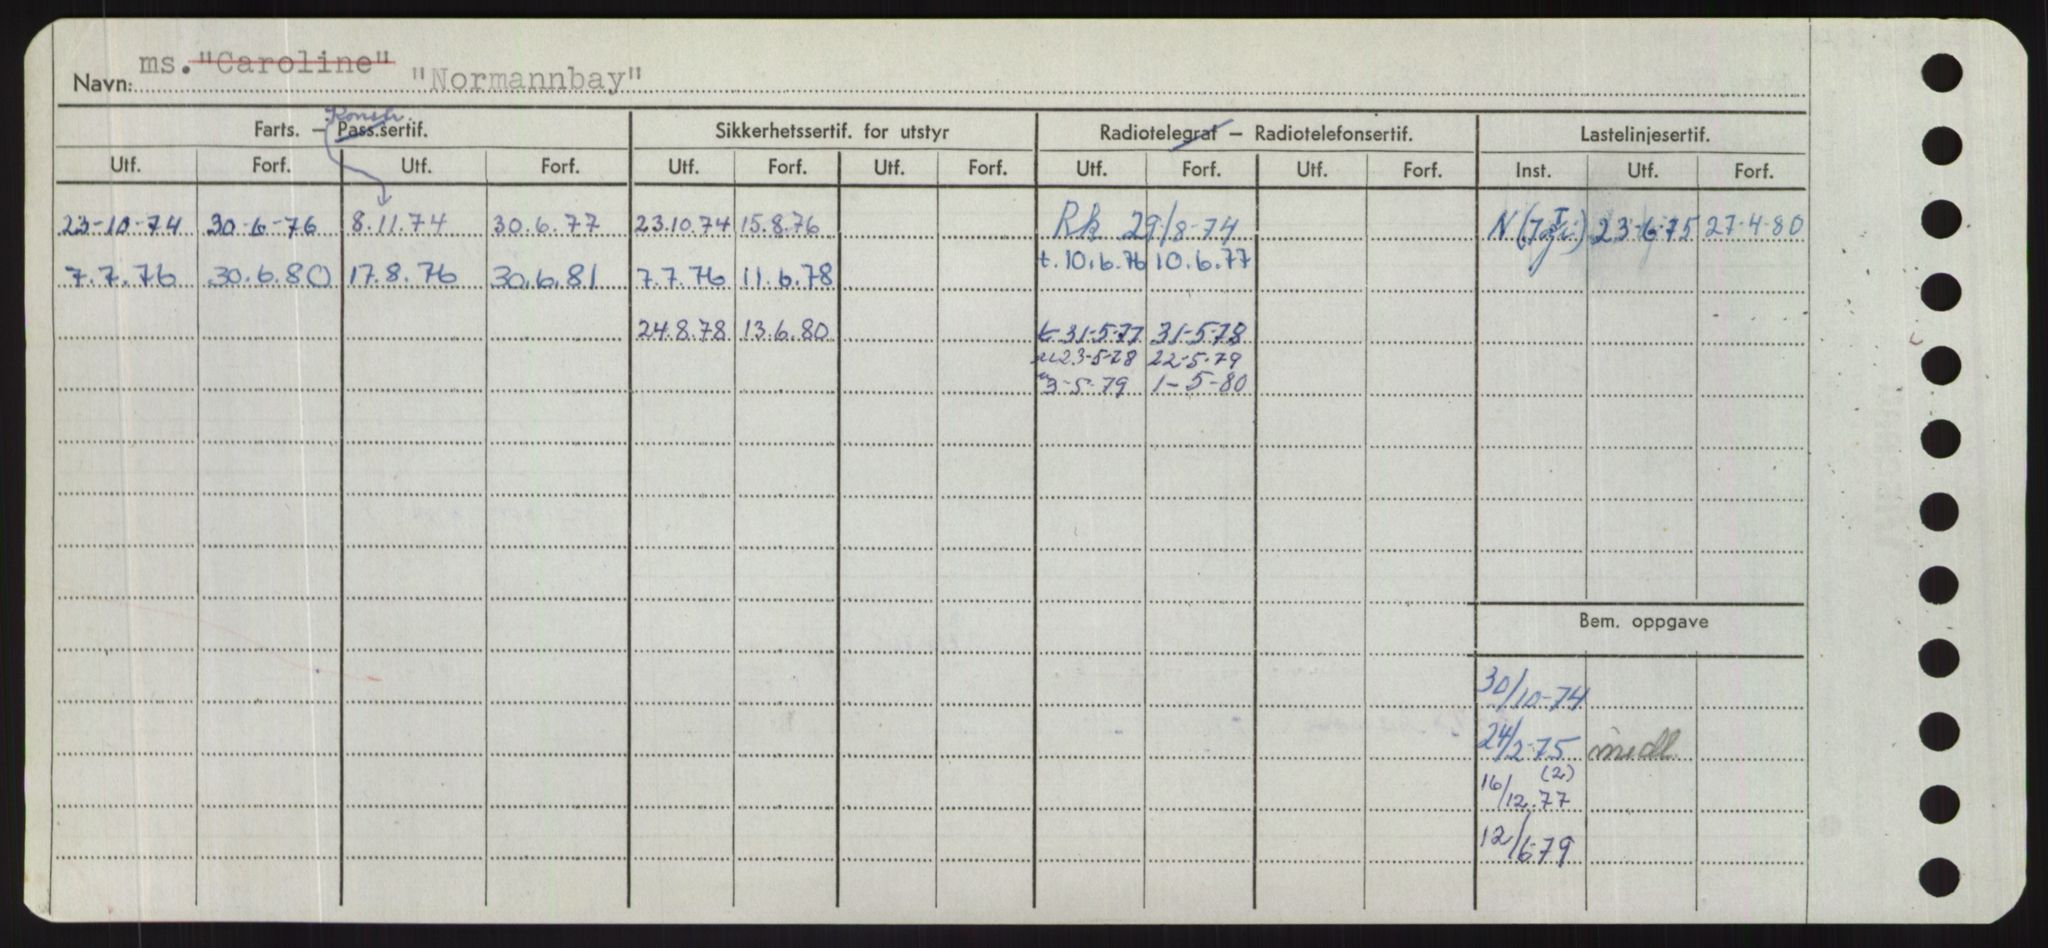 Navn: ms. "Caroline" "Normannbay"
Konstr.
Farts. – Pass.sertif. Sikkerhetssertif. for utstyr Radiotelegraf – Radiotelefonsertif. Lastelinjesertif.
Utf. Forf. Utf. Forf. Utf. Forf. Utf. Forf. Utf. Forf. Utf. Forf. Inst. Utf. Forf.
23-10-74 30-6-76 8.11.74 30.6.77 23.10.74 15.8.76 Rk 29/8-74 N 23-6-75 27-4-80
7.7.76 30.6.80 17.8.76 30.6.81 7.7.76 11.6.78 t. 10.6.76 10.6.77
24.8.78 13.6.80 t 31-5-77 31-5-78
23-5-78 22-5-79
3-5-79 1-5-80
Bem. oppgave
30/10-74
24/2-75 medl.
16/12.77 (2)
12/6-79